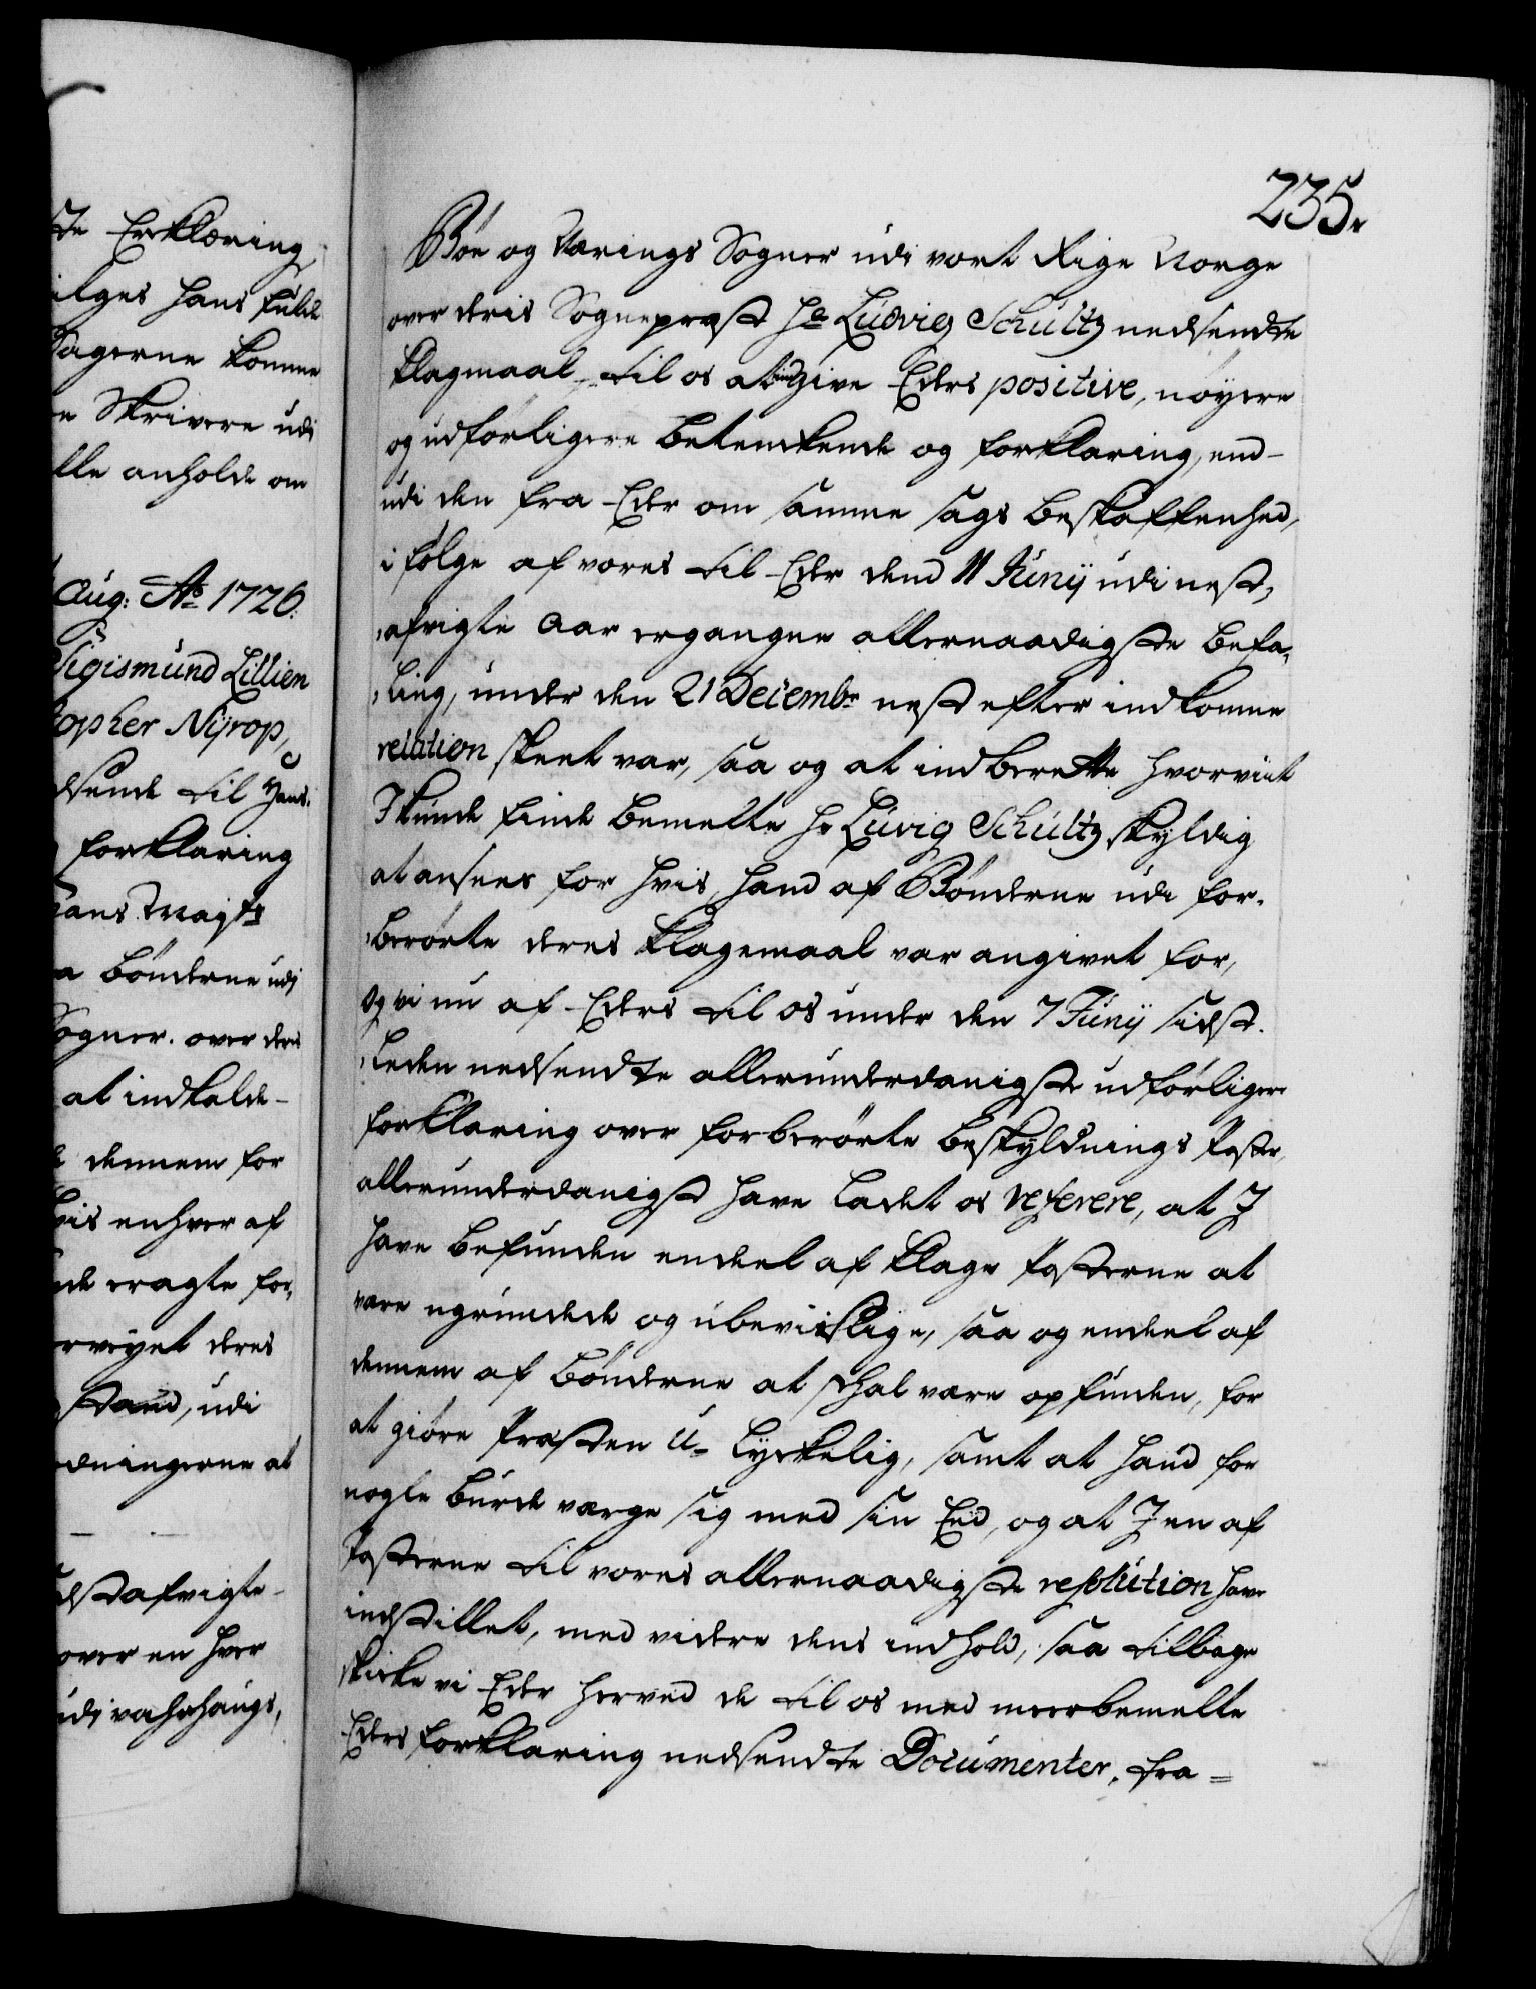 ste Erklæring
ilges hans fulde
Sagerne komme
e Skrivere udi
lle anholde om
Aug: Aō 1726.
Sigismund Lillien
topher Nÿrop,
dsende til Hans
forklaring
Hans Maÿts
a bønderne udi
Sogner. over deris
at indkalde
dennem for
hvis enhver af
de eragte for,
deres
stand, udi
dningerne at
idstafvigte
over en hver
235.
Bøe og Værings Sogner udi vort Rige Norge
over deris Sognepræst Hr Ludvig Schultz nedsendte
klagmaal, til os at indgive Eders positive, nøyere
og udførligere betenkende og forklaring, end
udi den fra Eder om samme sags beskaffenhed,
i følge af vores til Eder dend 11 Junij udi nest,
afvigte Aar ergangne allernaadigste befa,
ling, under den 21 Decembr nest efter indkomne
relation skeet var, saa og at indberette hvorvit
I kunde finde bemelte Hr Luvig Schultz skyldig
at ansees for hvis hand af Bønderne udi for.
berørte deres klagemaal var angivet for,
Og vi nu af Eders til os under den 7 Junij sidst.
leden nedsendte allerunderdanigste udførligere
forklaring over forberørte beskyldnings Poster,
allerunderdanigst have ladet os referere, at I
have befunden endeel af klage Posterne at
være ugrundede og ubeviislige, saa og endeel af
dennem af bønderne at schal være opfunden, for
at giøre Præsten U- lyckelig, samt at hand for
nogle burde værge sig med sin Eed, og at I en af
Posterne til vores allernaadigste resolution have
indstillet, med videre dens indhold, saa tilbage
skicke vi Eder herved de til os med meerbemelte
Eders forklaring nedsendte Documenter, fra=